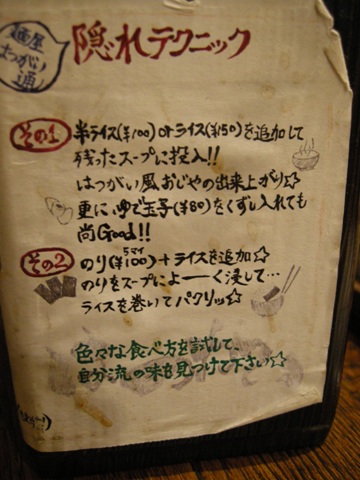 麺屋
はつがい
通
隠れテクニック
その1
半ライス(¥100)orライス(¥150)を追加して
残ったスープに投入!!
はつがい風おじやの出来上がり☆
更に、ゆで玉子(¥80)をくずし入れても
尚Good!!
その2
5マイ
のり(¥100)+ライスを追加☆
のりをスープによーく浸して…
ライスを巻いてパクリッ☆
色々な食べ方を試して、
自分流の味を見つけて下さい☆